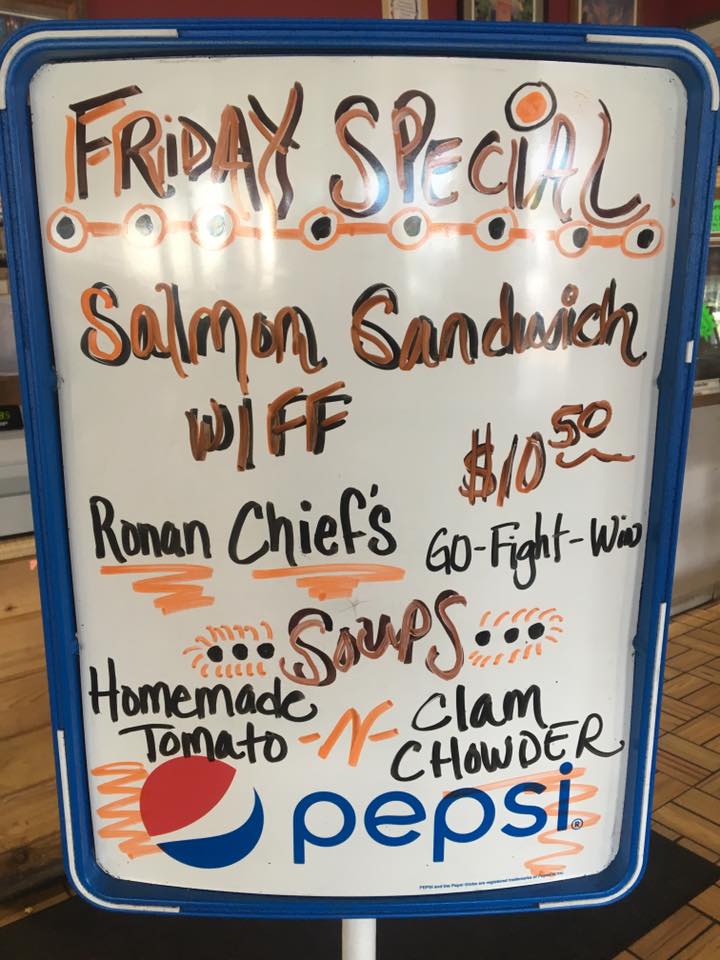 FRiDAY SPECiAL
Salmon Sandwich
WIFF
$10 50
Ronan Chief's
GO-Fight-Win
SOUPS
Homemade
Tomato
-N-
Clam
CHOWDER
pepsi®
PEPSI and the Pepsi Globe are registered trademarks of PepsiCo, Inc.